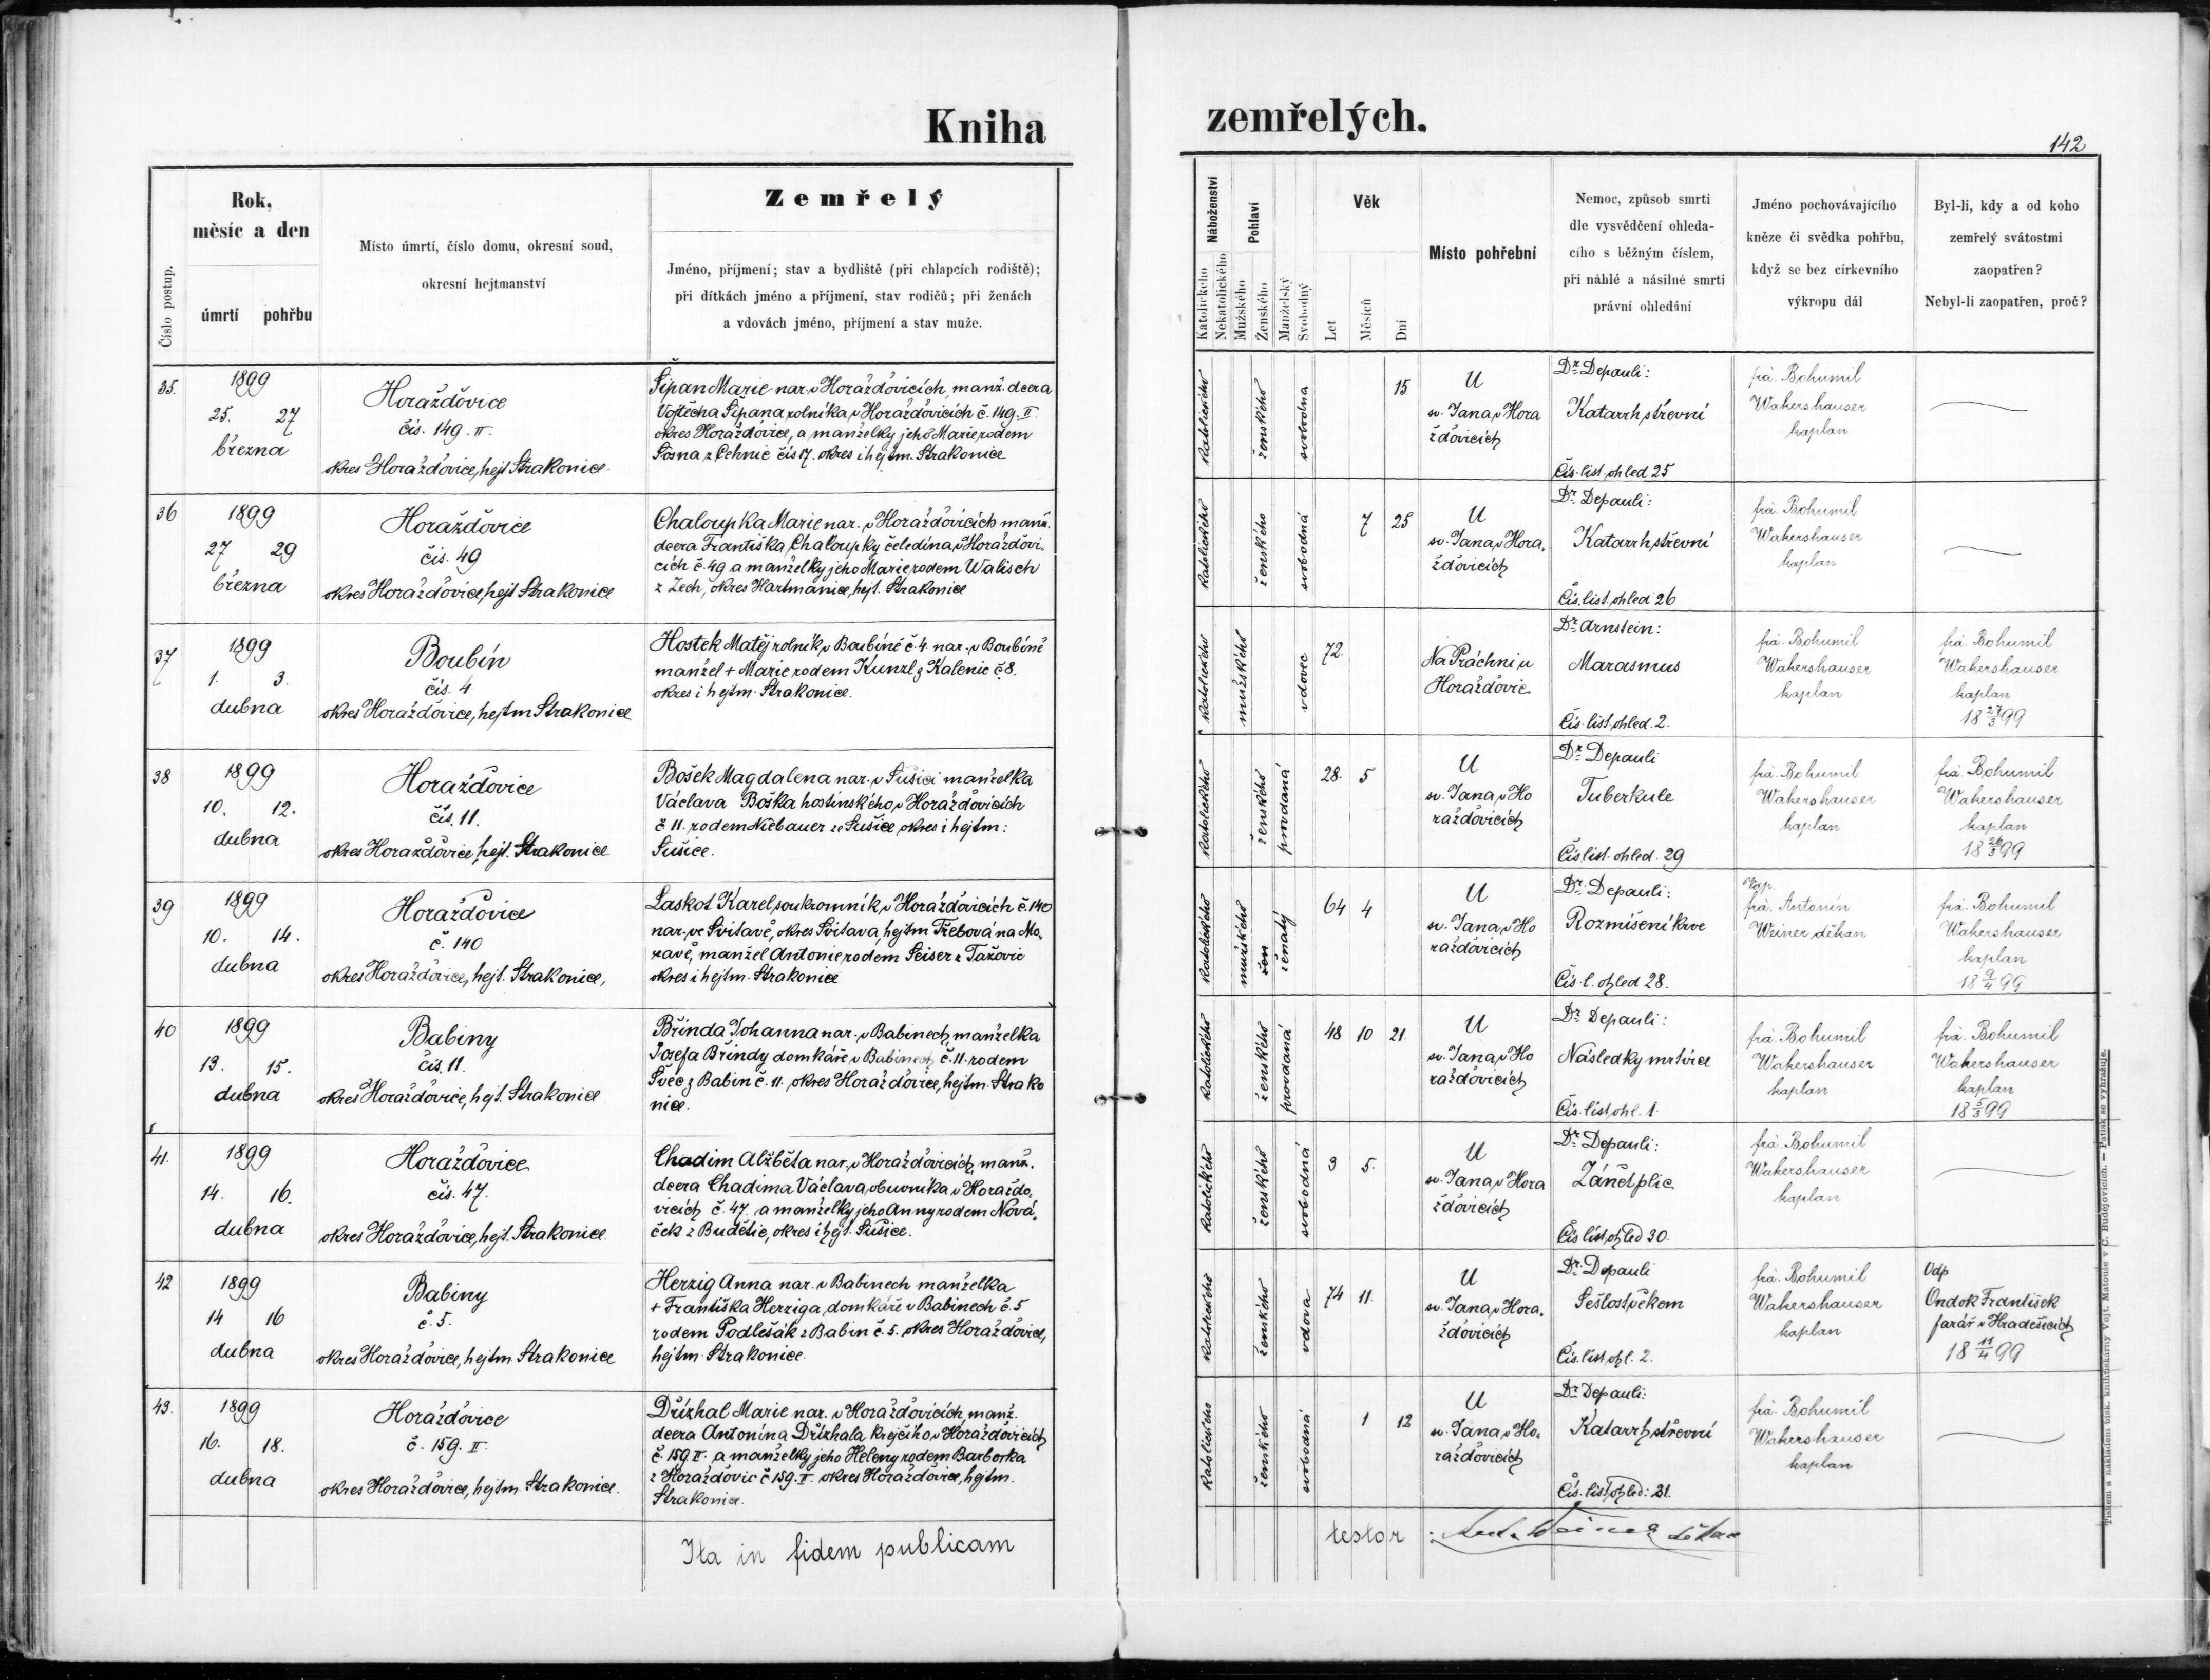 Kniha
zemřelých.
142
Číslo postup.
Rok,
měsíc a den
úmrtí pohřbu
Místo úmrtí, číslo domu, okresní soud,
okresní hejtmanství
Zemřelý
Jméno, příjmení; stav a bydliště (při chlapcích rodiště);
při dítkách jméno a příjmení, stav rodičů; při ženách
a vdovách jméno, příjmení a stav muže.
Náboženství
Katolického
Nekatolického
Pohlaví
Mužského
Ženského
Manželský
Svobodný
Věk
Let
Měsíců
Dní
Místo pohřební
Nemoc, způsob smrti
dle vysvědčení ohleda-
cího s běžným číslem,
při náhlé a násilné smrti
právní ohledání
Jméno pochovávajícího
kněze či svědka pohřbu,
když se bez církevního
výkropu dál
Byl-li, kdy a od koho
zemřelý svátostmi
zaopatřen?
Nebyl-li zaopatřen, proč?
35.
1899
25. 27
března
Horažďovice
čís. 149. II.
okres Horažďovice, hejt. Strakonice
Šípan Marie nar. v Horažďovicích, manž. dcera
Vojtěcha Šípana rolníka, v Horažďovicích č. 149. II.
okres Horažďovice, a manželky jeho Marie rodem
Sosna z Čehnic čís 17. okres i hejtm. Strakonice
katolického
ženského
svobodna
15
U
sv. Jana, v Hora
žďovicích
Dr. Depauli:
Katarrh střevní
Čís. list ohled 25
frá. Bohumil
Wakershauser
kaplan
36
1899
27 29
března
Horažďovice
čís. 49
okres Horažďovice, hejt Strakonice
Chaloupka Marie nar. v Horažďovicích manž.
dcera Františka Chaloupky čeledína, v Horažďovi-
cích č. 49 a manželky jeho Marie rodem Walisch
z Zech, okres Hartmanice, hejt. Strakonice
katolického
ženského
svobodná
7 25
U
sv. Jana, v Hora-
žďovicích
Dr. Depauli:
Katarrh střevní
Čís. list. ohled 26
frá. Bohumil
Wakershauser
kaplan
37
1899
1. 3.
dubna
Boubín
čís. 4
okres Horažďovice, hejtm Strakonice
Hostek Matěj rolník, v Boubíně č. 4. nar. v Boubíně
manžel + Marie rodem Kunzl z Kalenic č. 8.
okres i hejtm. Strakonice.
katolického
mužského
vdovec
72
Na Práchni u
Horažďovic
Dr. Arnstein:
Marasmus
Čís. list. ohled. 2.
frá. Bohumil
Wakershauser
kaplan
frá. Bohumil
Wakershauser
kaplan
18 27/3 99
38
1899
10. 12.
dubna
Horažďovice
čís. 11.
okres Horažďovice, hejt. Strakonice
Bošek Magdalena nar. v Sušici manželka
Václava Boška hostinského, v Horažďovicích
č 11. rodem Niebauer ze Sušice okres i hejtm:
Sušice.
katolického
ženského
provdaná
28. 5
U
sv. Jana, v Ho
ražďovicích
Dr. Depauli
Tuberkule
Čís. list. ohled. 29
frá. Bohumil
Wakershauser
kaplan
frá. Bohumil
Wakershauser
kaplan
18 26/3 99
39
1899
10. 14.
dubna
Horažďovice
č. 140
okres Horažďovice, hejt. Strakonice,
Laskot Karel, soukromník, v Horažďovicích č. 140
nar. ve Svitavě, okres Svitava, hejtm Třebová na Mo-
ravě, manžel Antonie rodem Seiser z Tažovic
okres i hejtm. Strakonice
katolického
mužského
žen
ženatý
64 4
U
sv. Jana, v Ho
ražďovicích
Dr. Depauli:
Rozmíšení krve
Čís. l. ohled 28.
Kap.
frá. Antonín
Weiner děkan
frá. Bohumil
Wakershauser
kaplan
18 9/4 99
40
1899
13. 15.
dubna
Babiny
čís. 11.
okres Horažďovice, hejt. Strakonice
Břinda Johanna nar. v Babinech, manželka
Josefa Břindy domkáře v Babinech, č. 11. rodem
Švec z Babin č. 11. okres Horažďovice, hejtm. Strako
nice.
katolického
ženského
provdaná
48 10 21
U
sv. Jana, v Ho
ražďovicích
Dr. Depauli:
Následky mrtvice
Čís. list, ohl. 1.
frá. Bohumil
Wakershauser
kaplan
frá. Bohumil
Wakershauser
kaplan
18 5/3 99
41.
1899
14. 16.
dubna
Horažďovice
čís. 47.
okres Horažďovice, hejt. Strakonice
Chadim Alžběta nar. v Horažďovicích, manž.
dcera Chadima Václava, obuvníka v Horaždo-
vicích č. 47. a manželky jeho Anny rodem Nová-
ček z Budětic, okres i hejt. Sušice.
katolického
ženského
svobodná
3 5.
U
sv. Jana, v Hora
žďovicích
Dr. Depauli:
Zánět plic.
Čís list, ohled 30.
frá. Bohumil
Wakershauser
kaplan
42
1899
14 16
dubna
Babiny
č. 5.
okres Horažďovice, hejtm Strakonice
Herzig Anna nar. v Babinech manželka
+ Františka Herziga, domkáře v Babinech č. 5
rodem Podlešák z Babin č. 5. okres Horažďovice,
hejtm. Strakonice.
katolického
ženského
vdova
74 11.
U
sv. Jana, v Hora-
žďovicích
Dr. Depauli
Sešlost věkem
Čís. list ohl. 2.
frá. Bohumil
Wakershauser
kaplan
Odp
Ondok František
farář v Hradešicích
18 11/4 99
43.
1899
16. 18.
dubna
Horažďovice
č. 159. II.
okres Horažďovice, hejtm. Strakonice.
Držhal Marie nar. v Horažďovicích, manž.
dcera Antonína Držhala krejčího, v Horažďovicích
č. 159 II. a manželky jeho Heleny rodem Barborka
z Horažďovic č 159. II. okres Horažďovice, hejtm.
Strakonice.
katolického
ženského
svobodná
1 12
U
sv. Jana, v Ho-
ražďovicích
Dr. Depauli:
Katarrh střevní
Čís. list, ohled: 31.
frá. Bohumil
Wakershauser
kaplan
Ita in fidem publicam
testor : Ant. Weiner děkan
Tiskem a nákladem bisk. knihtiskárny Vojt. Matouše v Č. Budějovicích. — Patisk se vyhražuje.